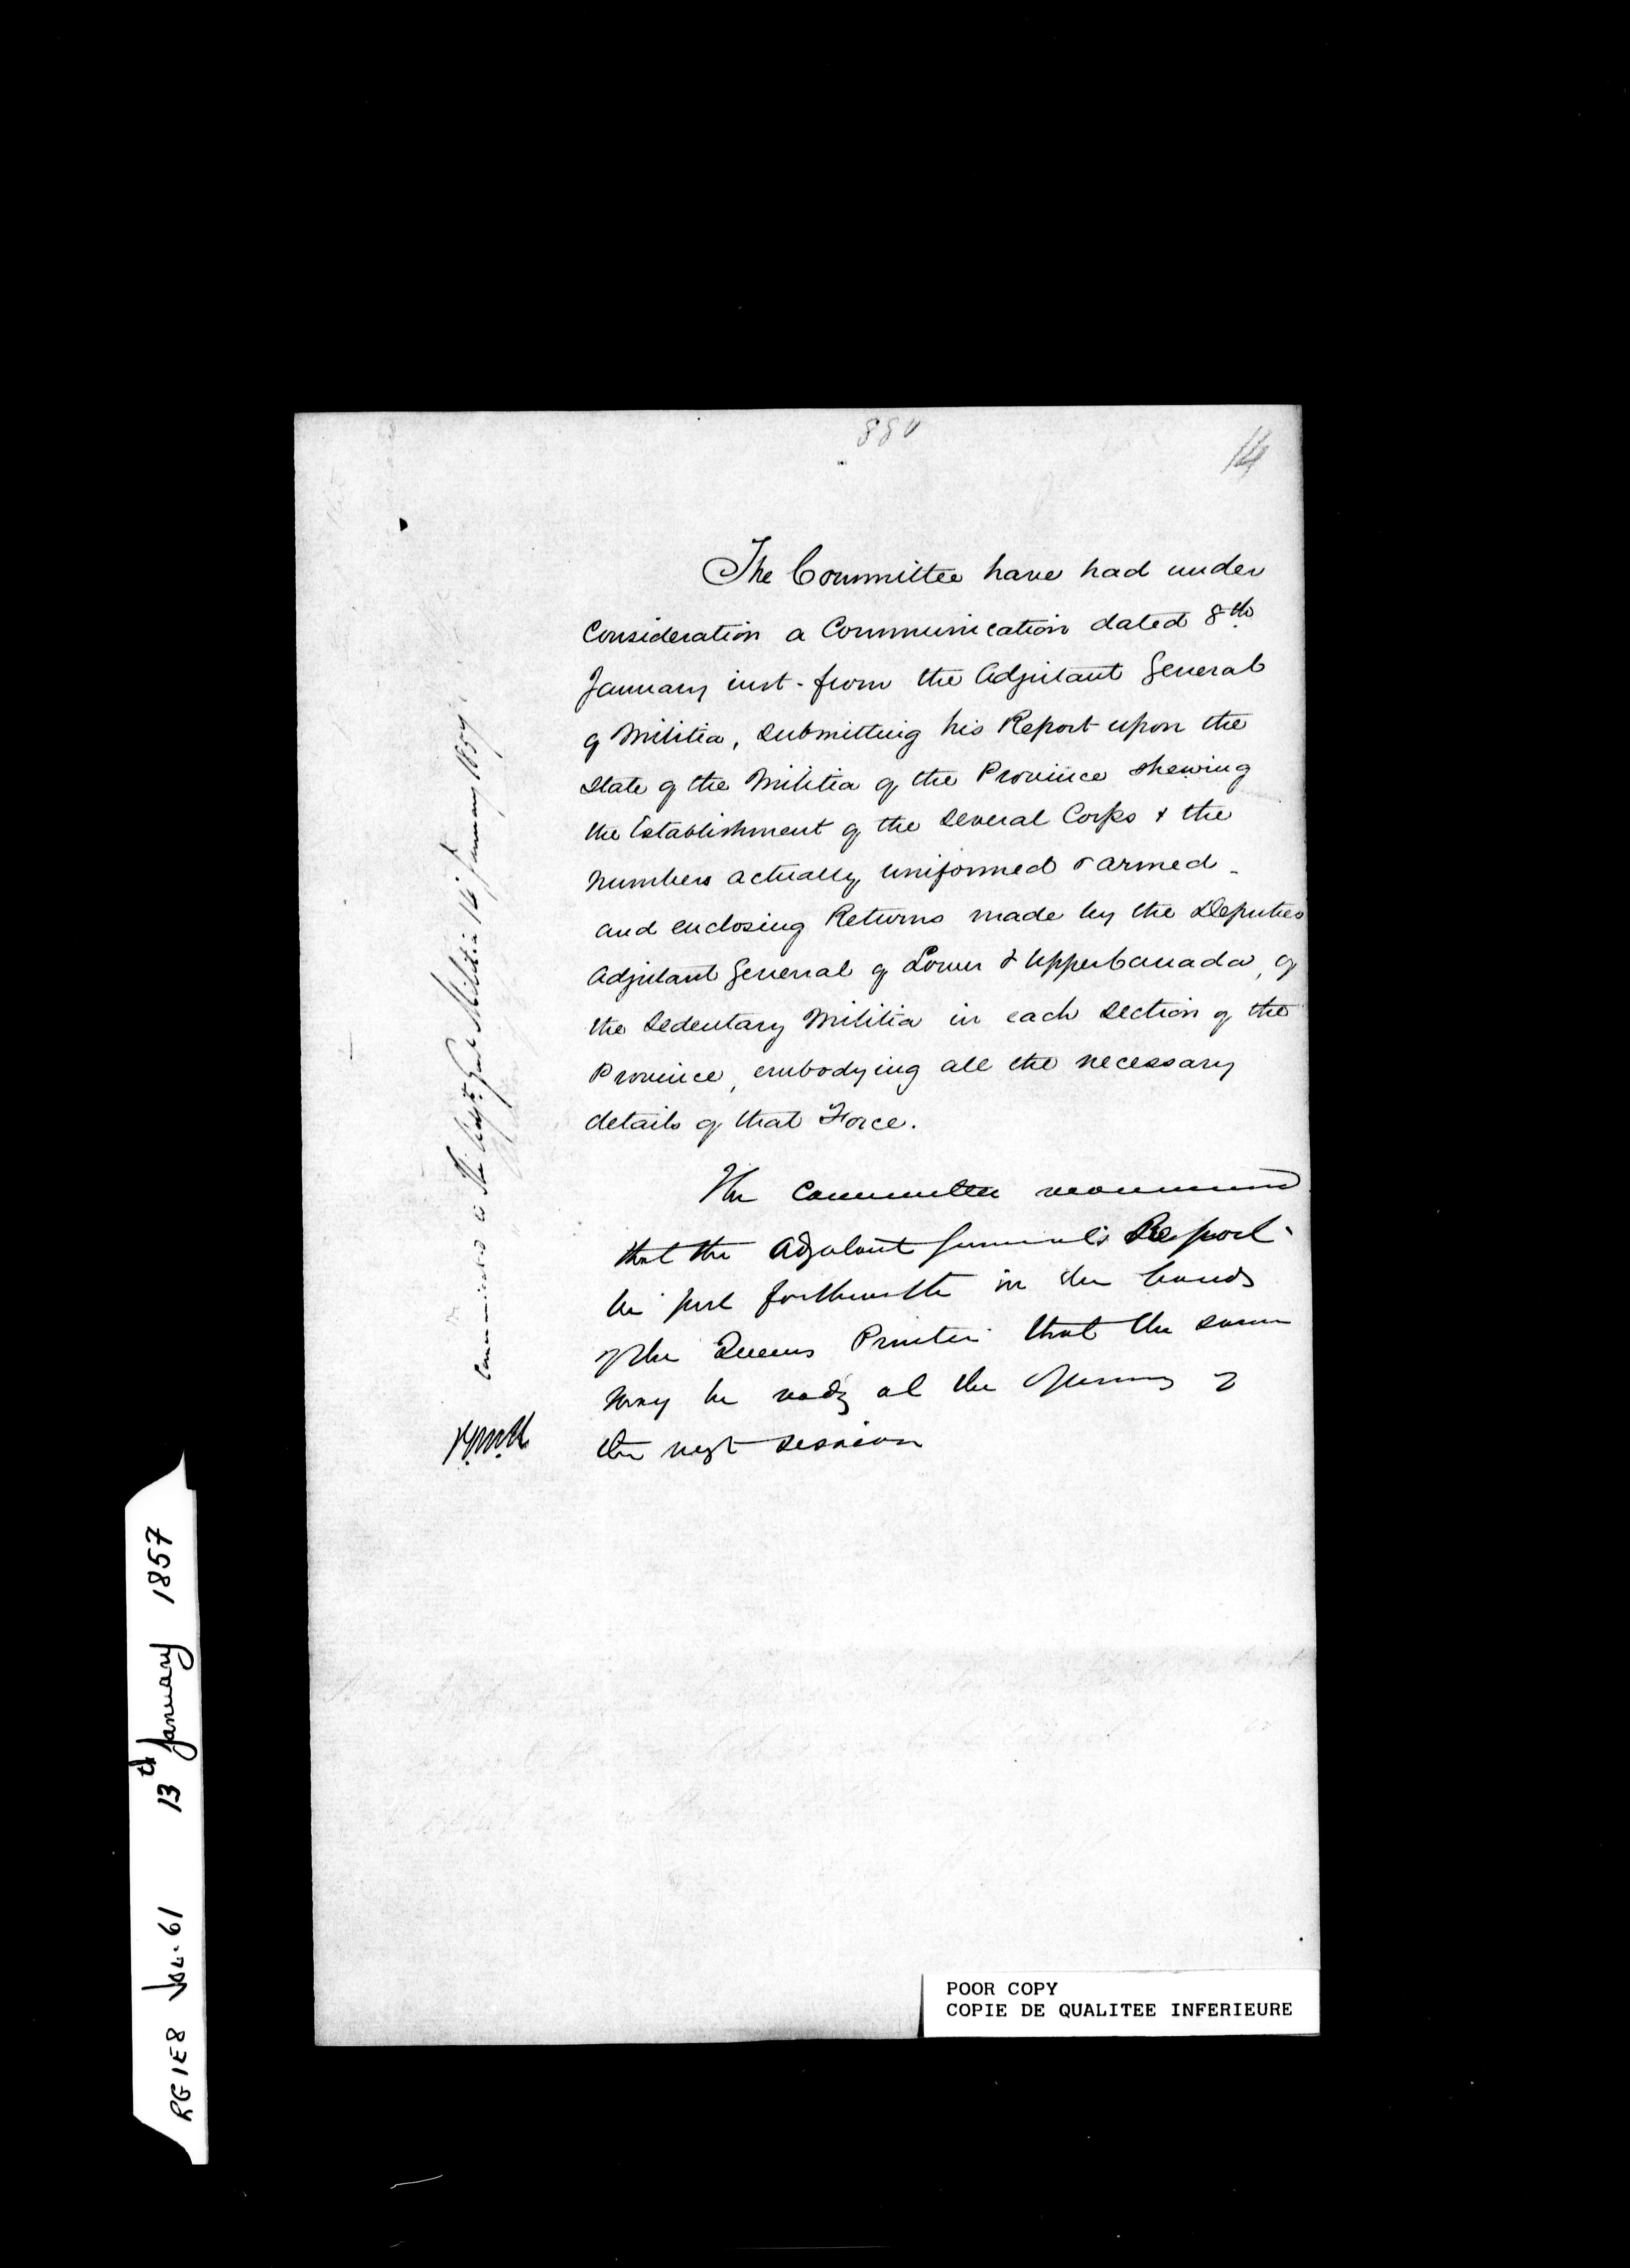 880
14
The Committee have had under
Consideration a Communication dated 8th
January inst. from the Adjutant General
of Militia, submitting his Report upon the
State of the Militia of the Province shewing
the Establishment of the several Corps & the
Numbers actually uniformed & armed -
and enclosing Returns made by the Deputies
Adjutant General of Lower & Upper Canada, of
the Sedentary Militia in each section of the
Province, embodying all the necessary
details of that Force.
The Committee recommend
that the Adjutant General's Report
be put forthwith in the hands
of the Queens Printer that the same
may be ready at the opening of
the next session
Communicated to the Adjt. Genl. Militia 14 January 1857
RG1E8 Vol. 61 13th January 1857
POOR COPY
COPIE DE QUALITEE INFERIEURE